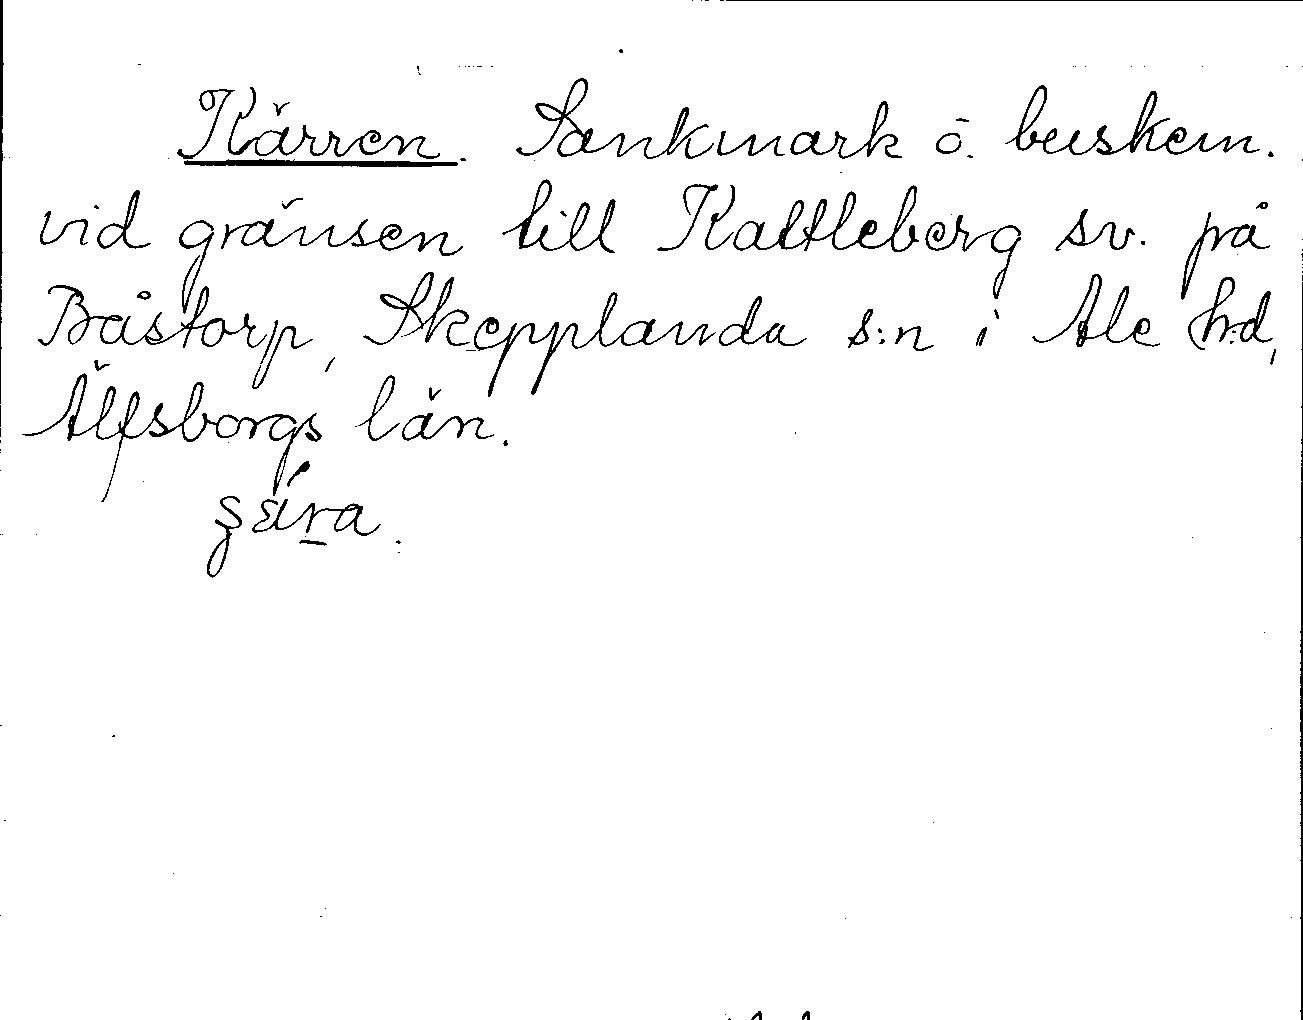 Kärren. Sankmark o. buskem.
vid gränsen till Kattleberg sv. på
Båstorp, Skepplanda s:n i Ale h:d,
Älfsborgs län.